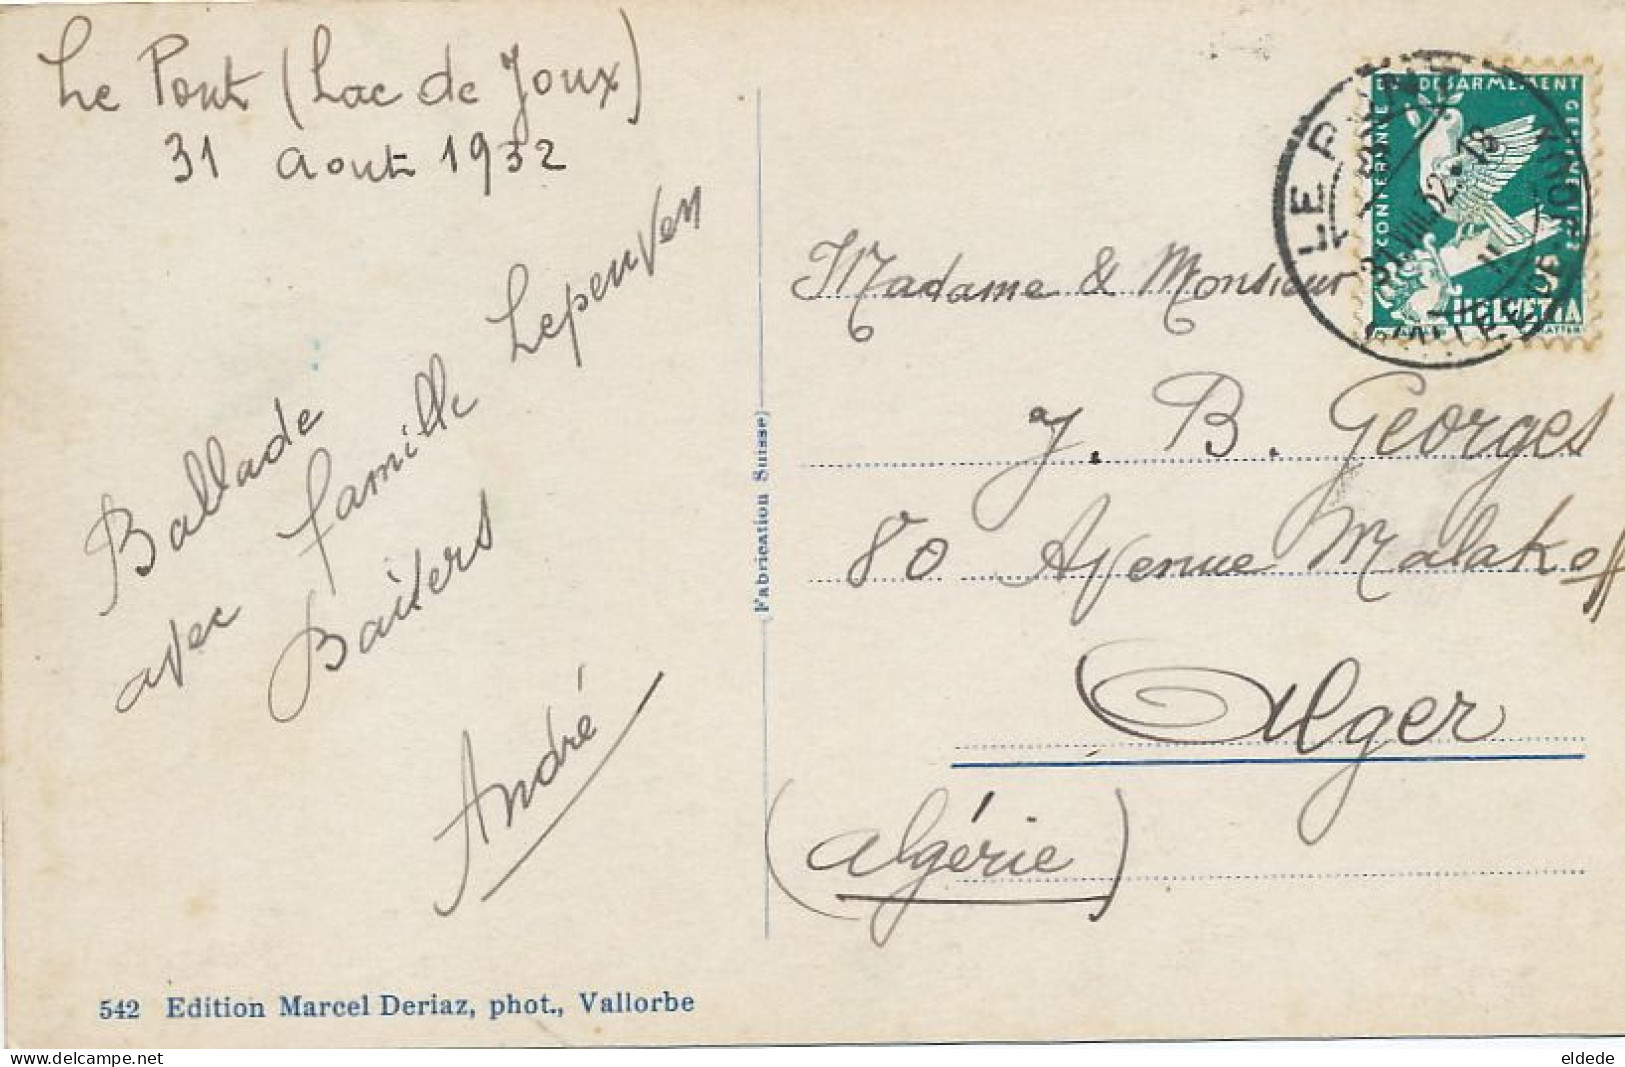 Le Pont (Lac de Joux)
31 Aout 1932
Ballade
avec famille Lepenven
Baiters
André
542 Edition Marcel Deriaz, phot., Vallorbe
(Fabrication Suisse)
CONFERENCE DU DESARMEMENT GENEVE
5
HELVETIA
LE PONT
31.VIII.32.-18
Madame & Monsieur
J. B. Georges
80 Avenue Malakoff
Alger
(Algérie)
eldede
delcampe.net